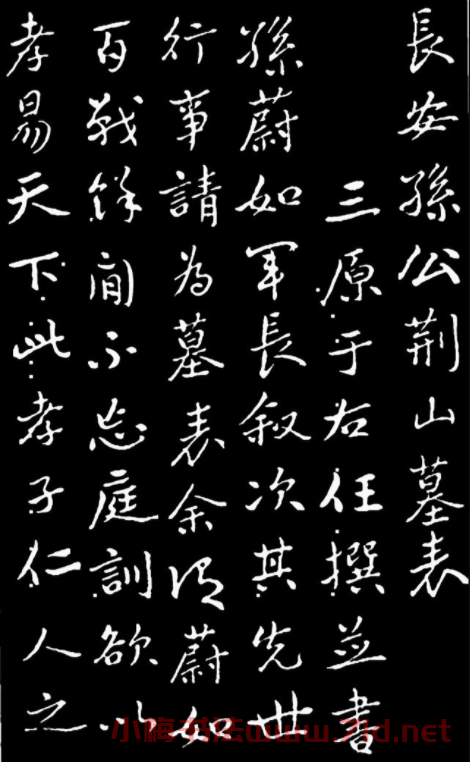 長安孫公荆山墓表
三原于右任撰並書
孫蔚如軍長叙次其先世
行事請為墓表余謂蔚如
百戰餘間不忘庭訓欲以
孝易天下此孝子仁人之
小梅书法www.7ld.net